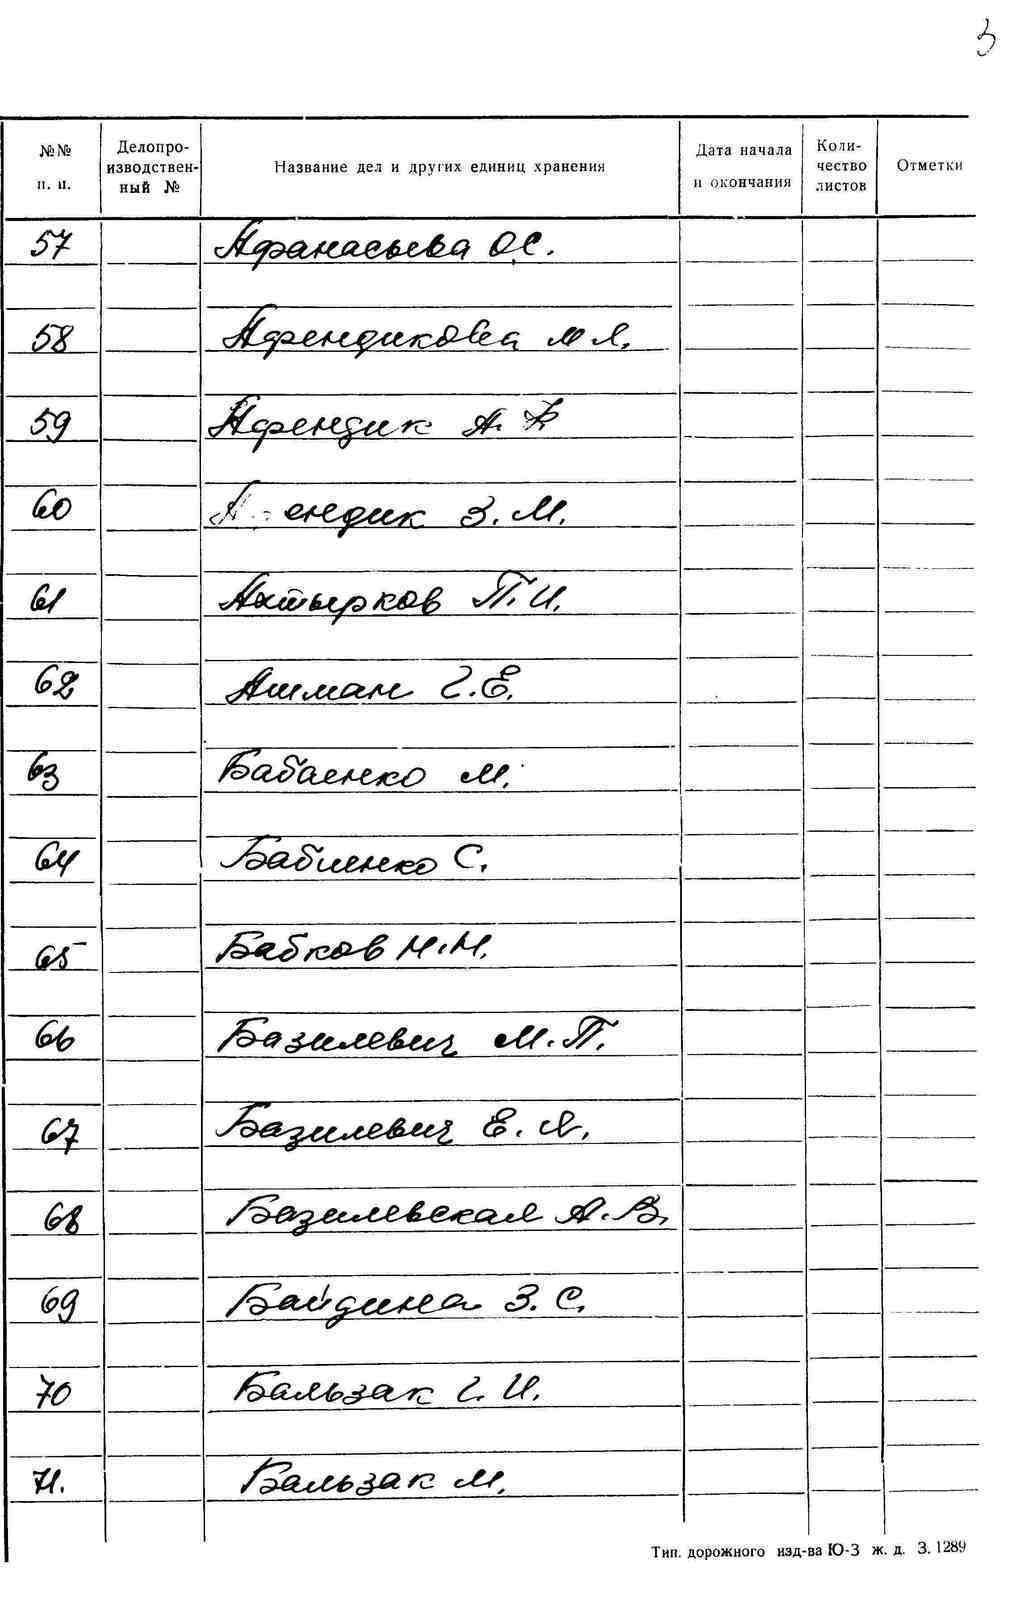 3
№№ п. п.
Делопроизводствен-ный №
Название дел и других единиц хранения
Дата начала и окончания
Коли-чество листов
Отметки
57 Афанасьева О.С.
58 Афендикова М Я.
59 Афендик А.
60 ендик З. М.
61 Ахтырков П. И.
62 Ашман Г. Е.
63 Бабаенко М.
64 Бабиенко С.
65 Бабков Н. Н.
66 Базилевич М. П.
67 Базилевич Е. Я.
68 Базилевская А. В.
69 Байдина З. С.
70 Бальзак Г. И.
71. Бальзак М.
Тип. дорожного изд-ва Ю-З ж. д. З. 1289